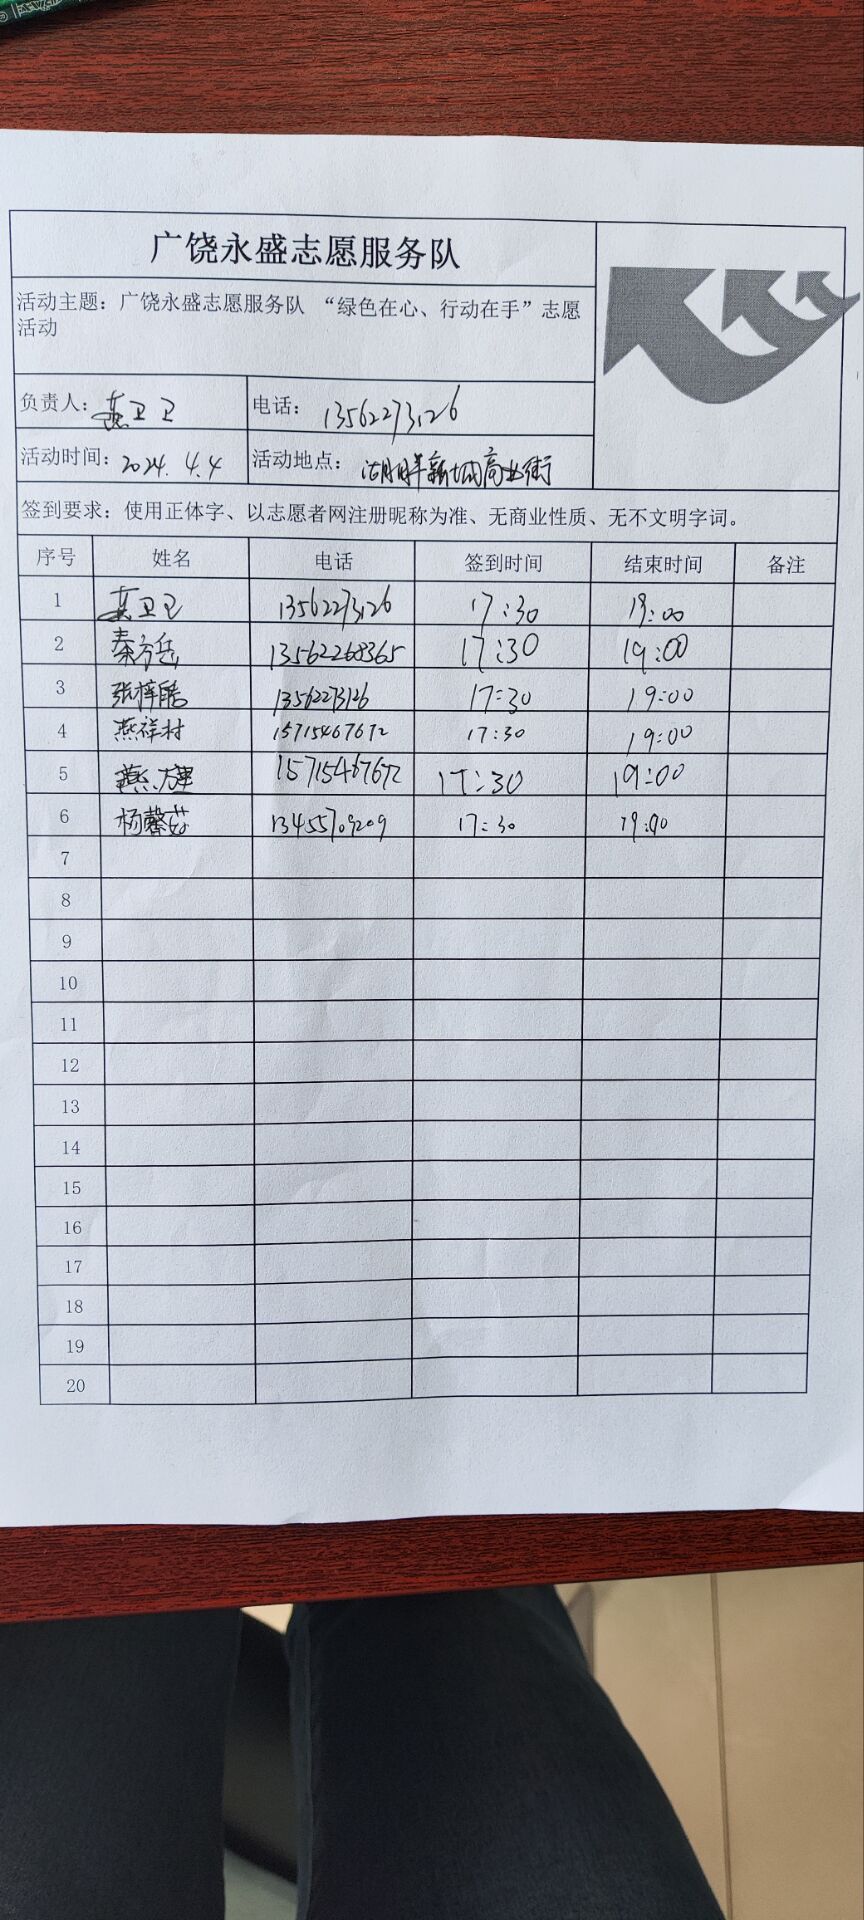 广饶永盛志愿服务队
活动主题：广饶永盛志愿服务队 “绿色在心、行动在手”志愿
活动
负责人：燕卫卫 电话：13562273126
活动时间：2024.4.4 活动地点：湖畔新城商业街
签到要求：使用正体字、以志愿者网注册昵称为准、无商业性质、无不文明字词。
序号 姓名 电话 签到时间 结束时间 备注
1 燕卫卫 13562273126 17:30 19:00
2 秦方岳 13562268365 17:30 19:00
3 张梓皓 13562273126 17:30 19:00
4 燕祥村 15715467672 17:30 19:00
5 燕 15715467672 17:30 19:00
6 杨馨茹 13455709209 17:30 19:00
7
8
9
10
11
12
13
14
15
16
17
18
19
20